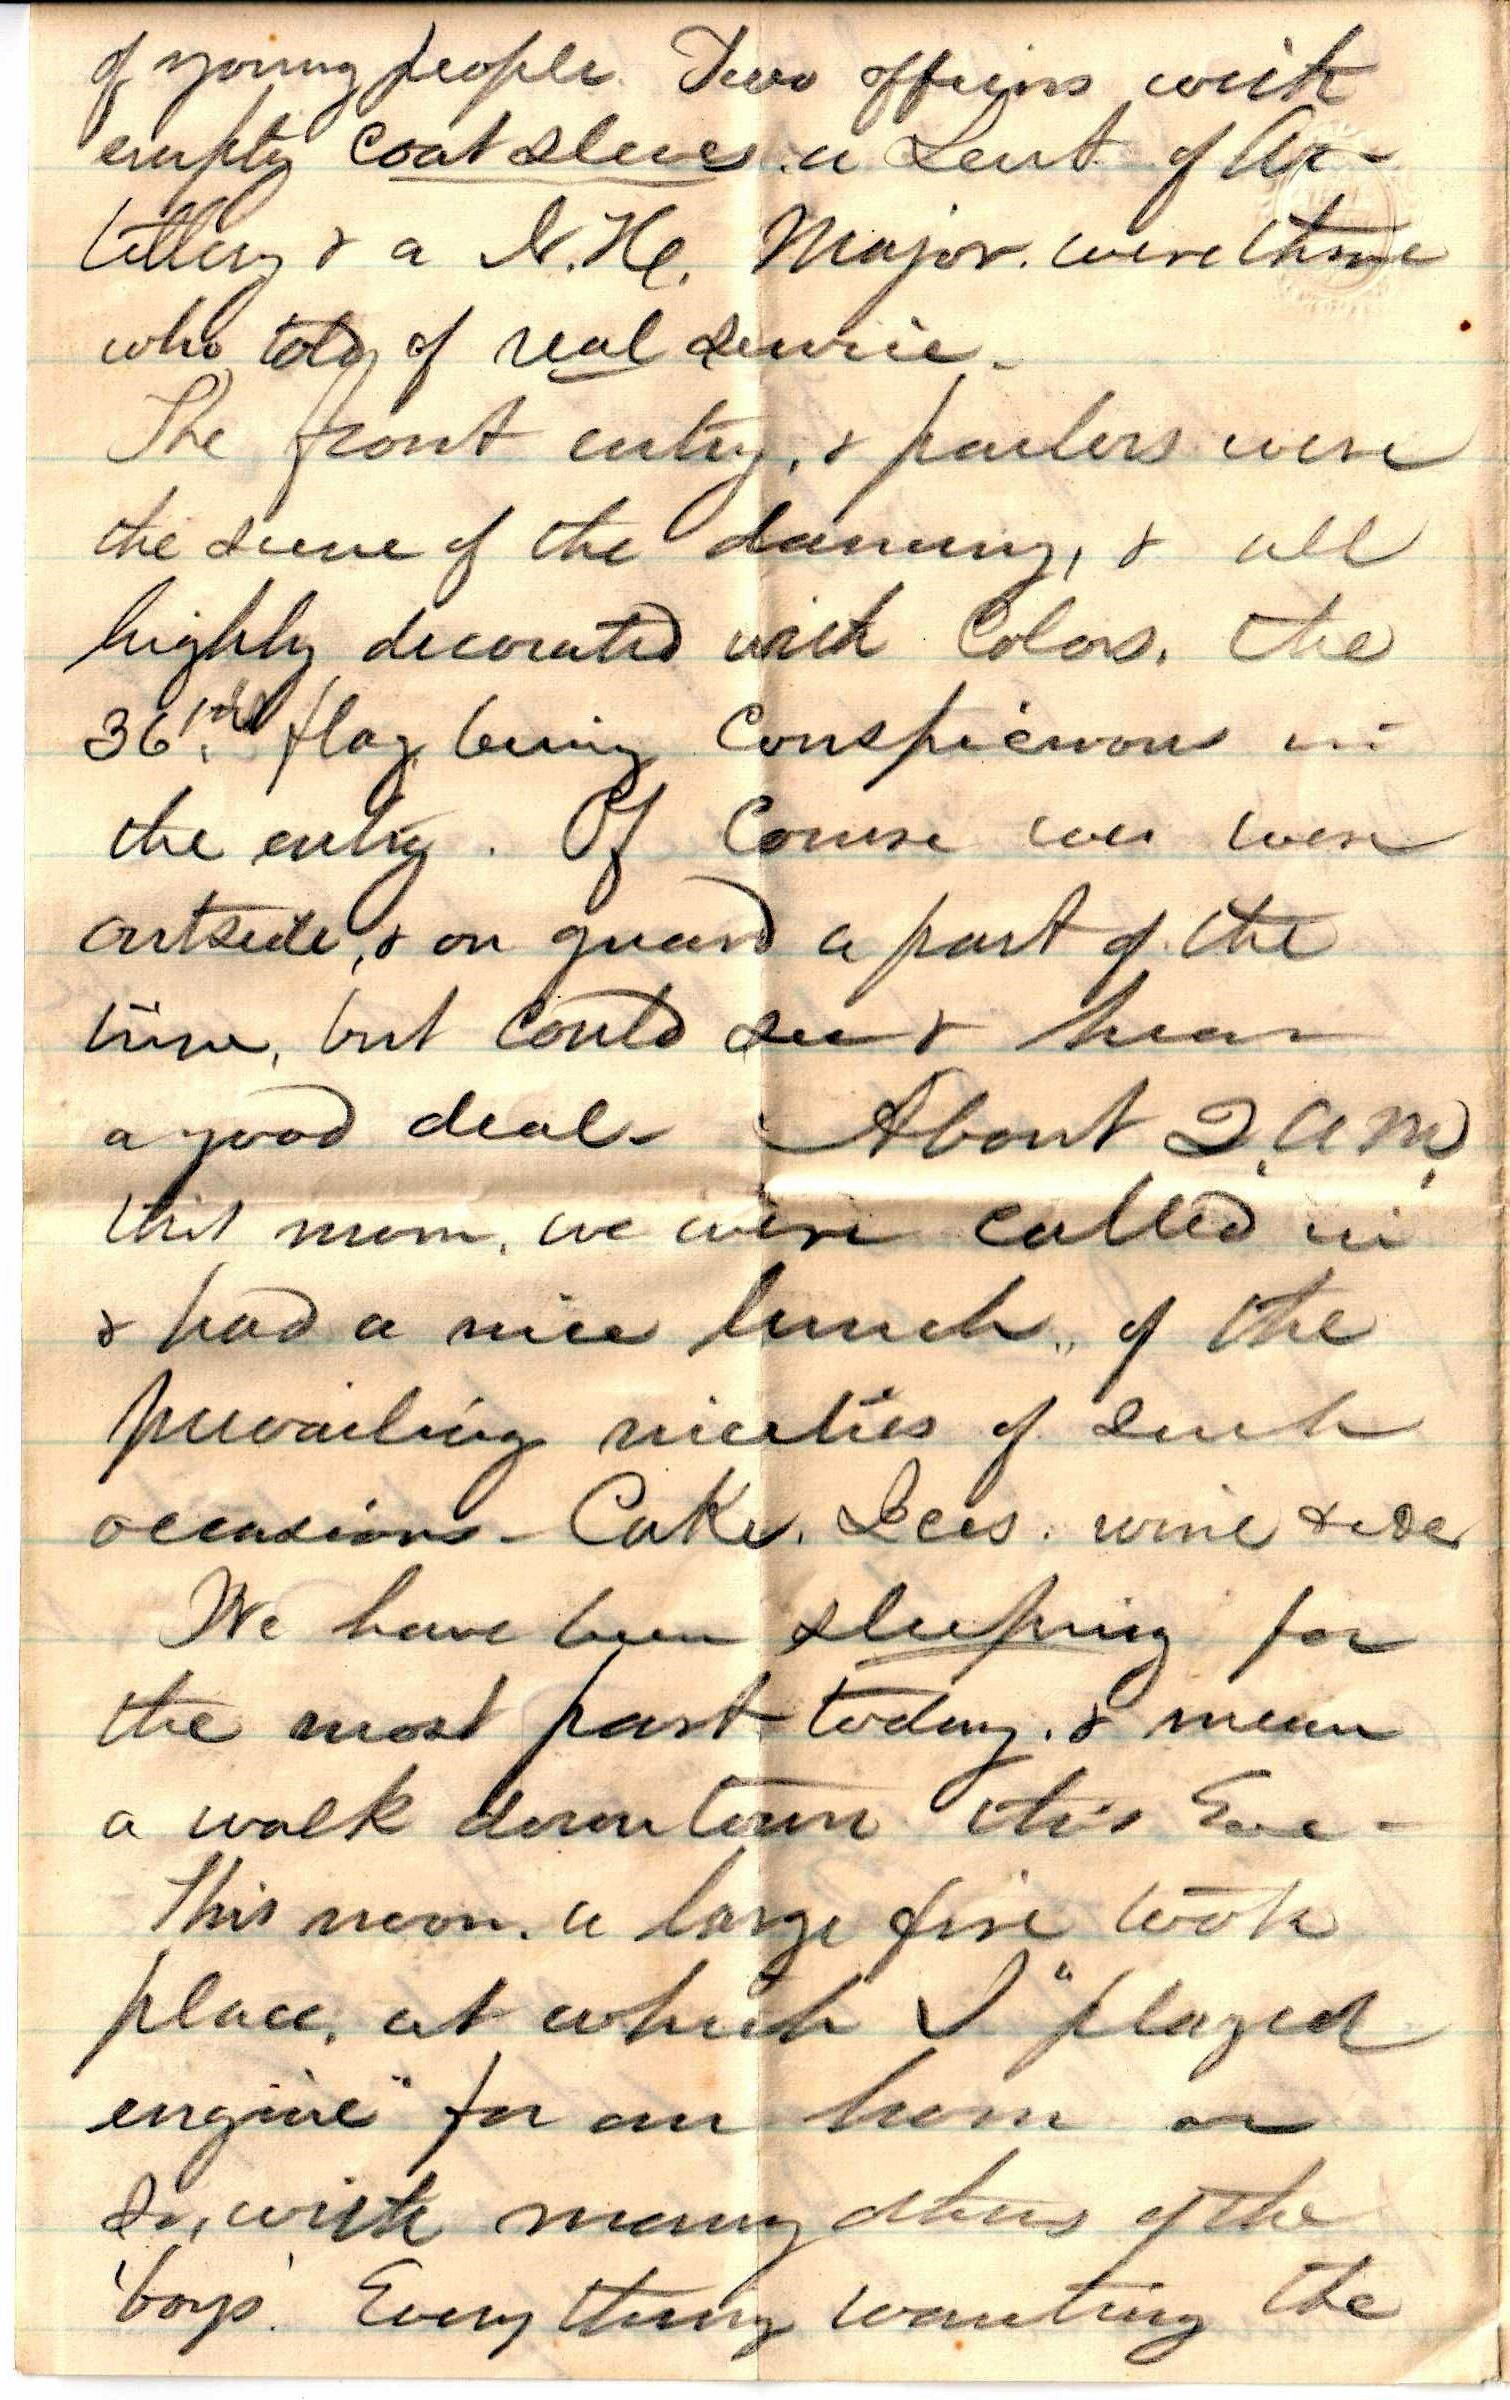 of young people. Two officers with
empty coat sleeves. a Leut. of Ar-
tillery & a N.H. Major. were those
who told of real service.
The front entry, & parlors were
the scene of the dancing, & all
highly decorated with Colors. the
36th flag being Conspicuous in
the entry. Of Course we were
outside, & on guard a part of the
time, but could see & hear
a good deal - About 2. A.M.
this morn. we were called in
& had a nice lunch, of the
prevailing niceties of such
occasions - Cake. Ices. wine
We have been sleeping for
the most part today. & mean
a walk down town this Eve -
This noon. a large fire took
place. at which I "played
engine" for an hour or
so, with many others of the
'boys'. Everything wanting the